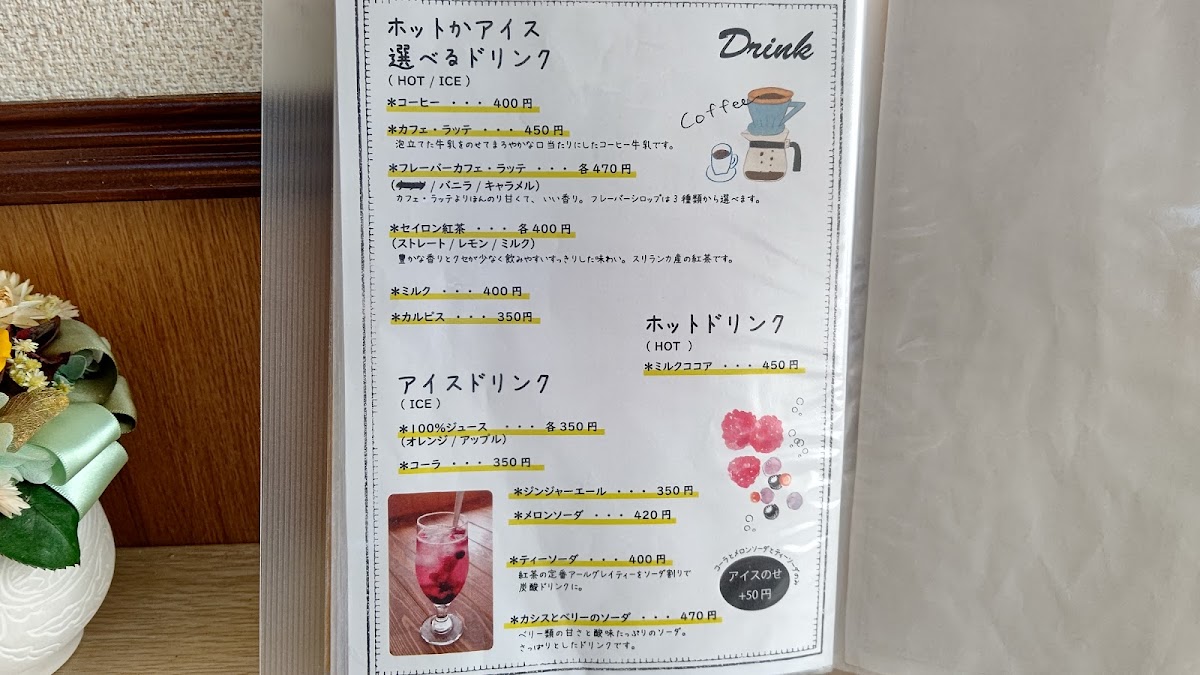 ホットかアイス
選べるドリンク
( HOT / ICE )
Drink
Coffee
＊コーヒー ・・・ 400円
＊カフェ・ラッテ ・・・ 450円
泡立てた牛乳をのせてまろやかな口当たりにしたコーヒー牛乳です。
＊フレーバーカフェ・ラッテ ・・・ 各470円
( / バニラ / キャラメル)
カフェ・ラッテよりほんのり甘くて、いい香り。フレーバーシロップは3種類から選べます。
＊セイロン紅茶 ・・・ 各400円
(ストレート / レモン / ミルク)
豊かな香りとクセが少なく飲みやすいすっきりした味わい。スリランカ産の紅茶です。
＊ミルク ・・・ 400円
＊カルピス ・・・ 350円
ホットドリンク
( HOT )
＊ミルクココア ・・・ 450円
アイスドリンク
( ICE )
＊100%ジュース ・・・ 各350円
(オレンジ / アップル)
＊コーラ ・・・ 350円
＊ジンジャーエール ・・・ 350円
＊メロンソーダ ・・・ 420円
＊ティーソーダ ・・・ 400円
紅茶の定番アールグレイティーをソーダ割りで
炭酸ドリンクに。
＊カシスとベリーのソーダ ・・・ 470円
ベリー類の甘さと酸味たっぷりのソーダ。
さっぱりとしたドリンクです。
コーラとメロンソーダとティーソーダのみ
アイスのせ
+50円